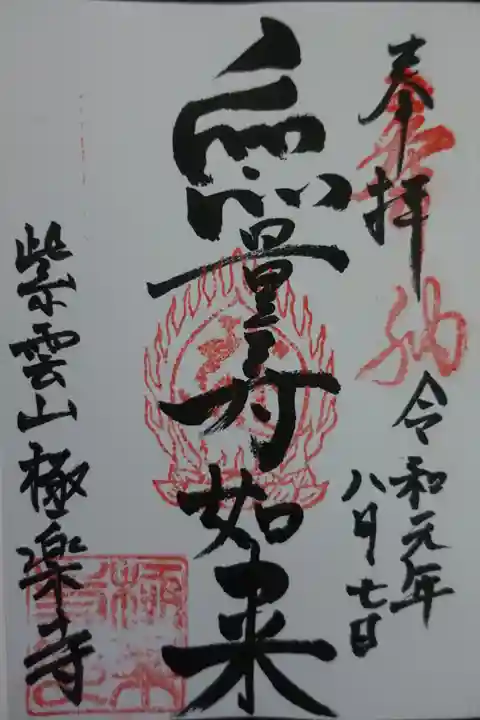 奉拝
奉納
令和元年
八月七日
無量寿如来
紫雲山極楽寺